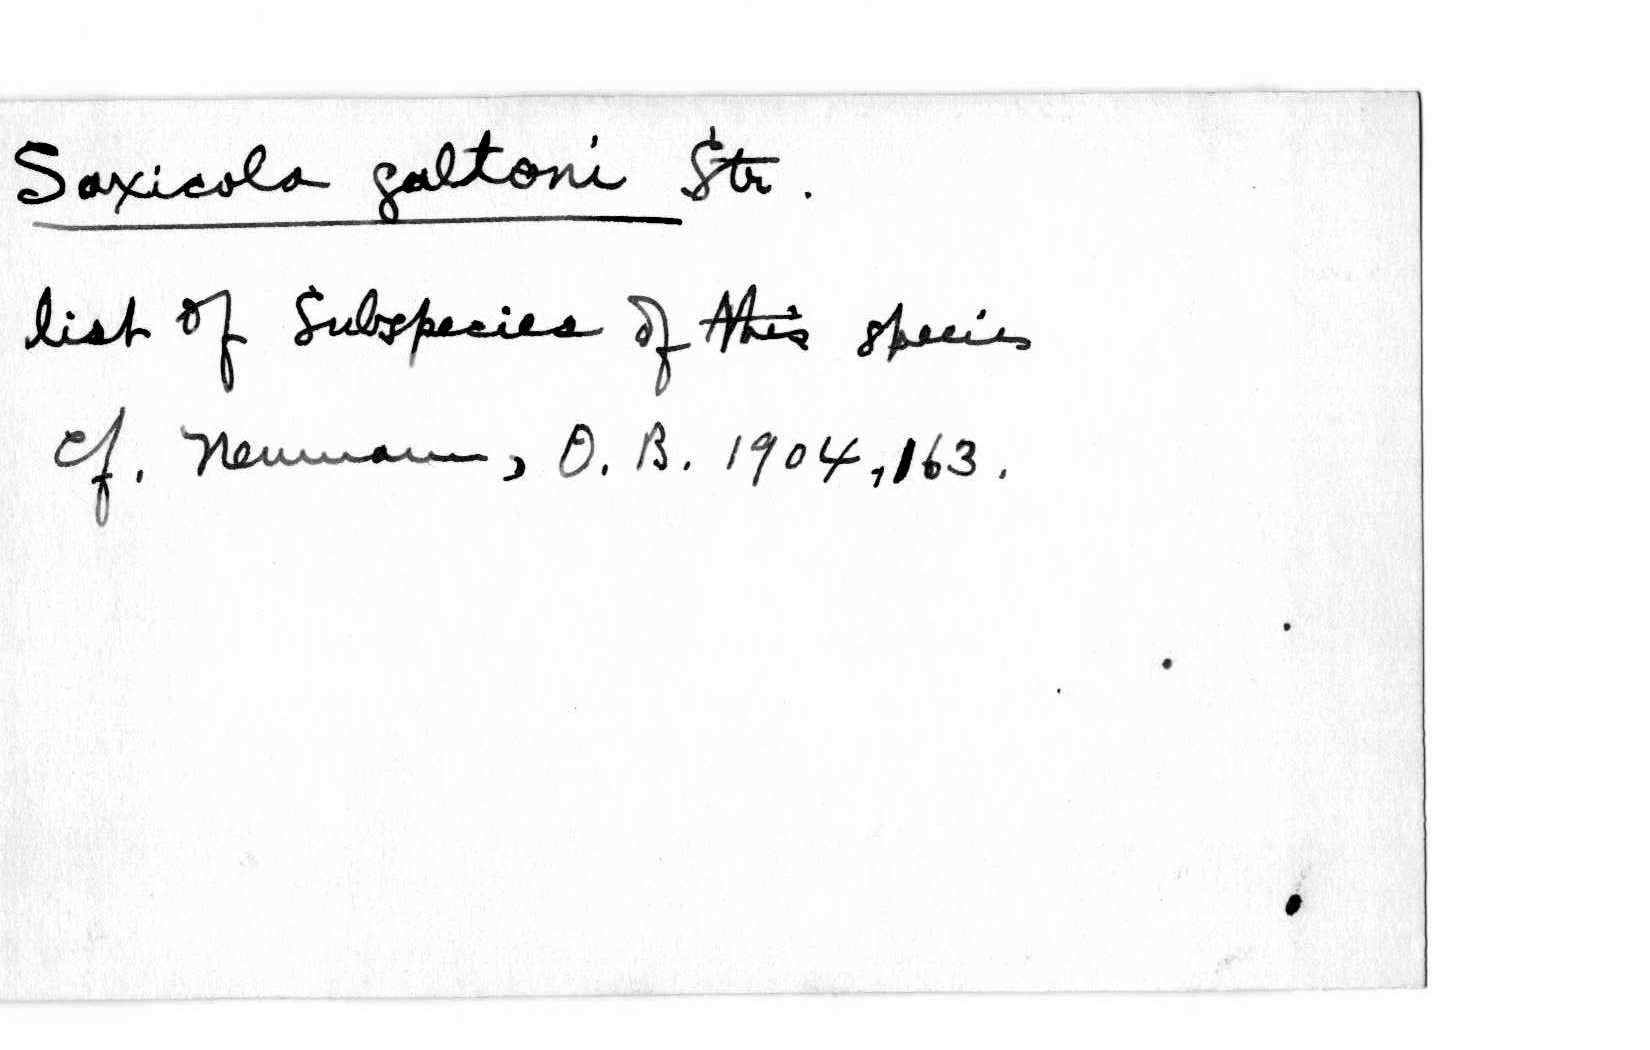 Saxicola galtoni Str.
list of Subspecies of this species
cf. Neumann, O. B. 1904, 163.